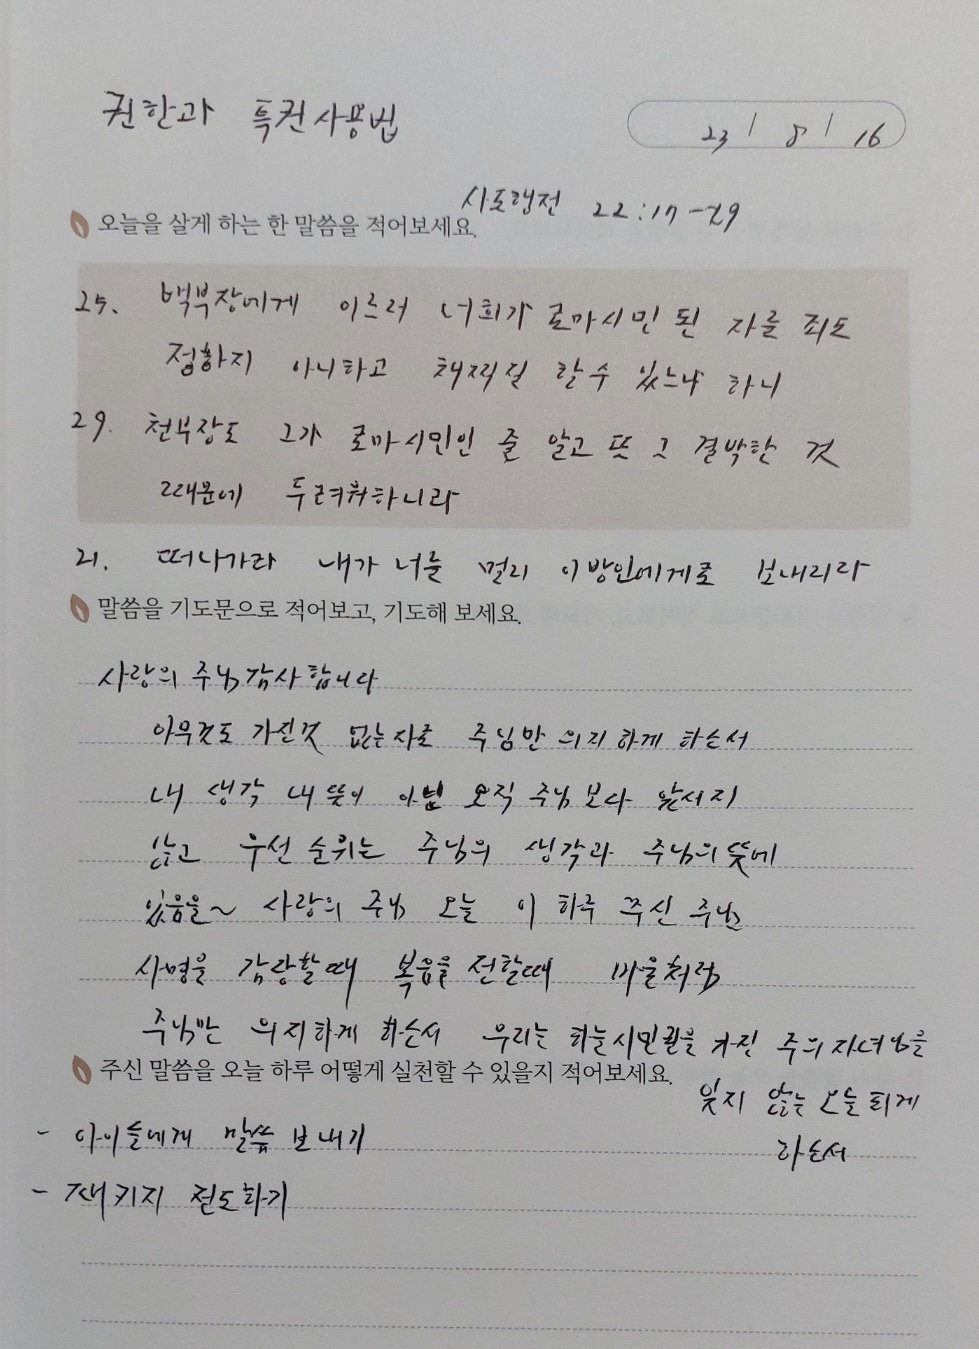 권한과 특권사용법
23 / 8 / 16
사도행전 22:17-29
오늘을 살게 하는 한 말씀을 적어보세요.
25. 백부장에게 이르러 너희가 로마시민 된 자를 죄도
정하지 아니하고 채찍질 할수 있느냐 하니
29. 천부장도 그가 로마시민인 줄 알고 또 그 결박한 것
때문에 두려워하니라
21. 떠나가라 내가 너를 멀리 이방인에게로 보내리라
말씀을 기도문으로 적어보고, 기도해 보세요.
사랑의 주님 감사합니다
아무것도 가진것 없는자로 주님만 의지하게 하소서
내 생각 내 뜻이 아닌 오직 주님 보다 앞서지
않고 우선 순위는 주님의 생각과 주님의 뜻에
있음을~ 사랑의 주님 오늘 이 하루 주신 주님
사명을 감당할때 복음을 전할때 바울처럼
주님만 의지하게 하소서 우리는 하늘시민권을 가진 주의 자녀님을
주신 말씀을 오늘 하루 어떻게 실천할 수 있을지 적어보세요.
잊지 않는 오늘 되게
하소서
- 아이들에게 말씀 보내기
- 전도하기